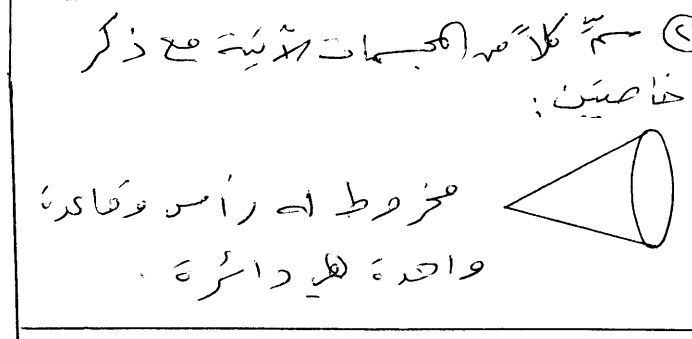 ② سمِّ كلاً من المجسمات الآتية مع ذكر
خاصيتين :
مخروط له رأس وقاعدة
واحدة هي دائرة .